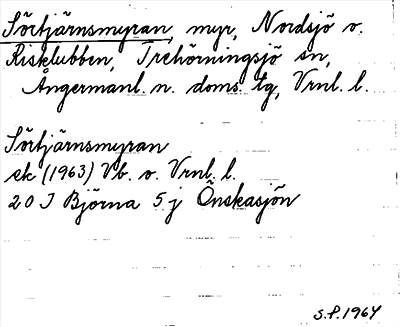 Sörtjärnsmyran, myr, Nordsjö o.
Risklubben, Trehörningsjö sn,
Ångermanl. n. doms. tg, Vrnl. l.
Sörtjärnsmyran
ek (1963) Vb. o. Vrnl. l.
20 I Björna 5 j Önskasjön
S.P. 1964